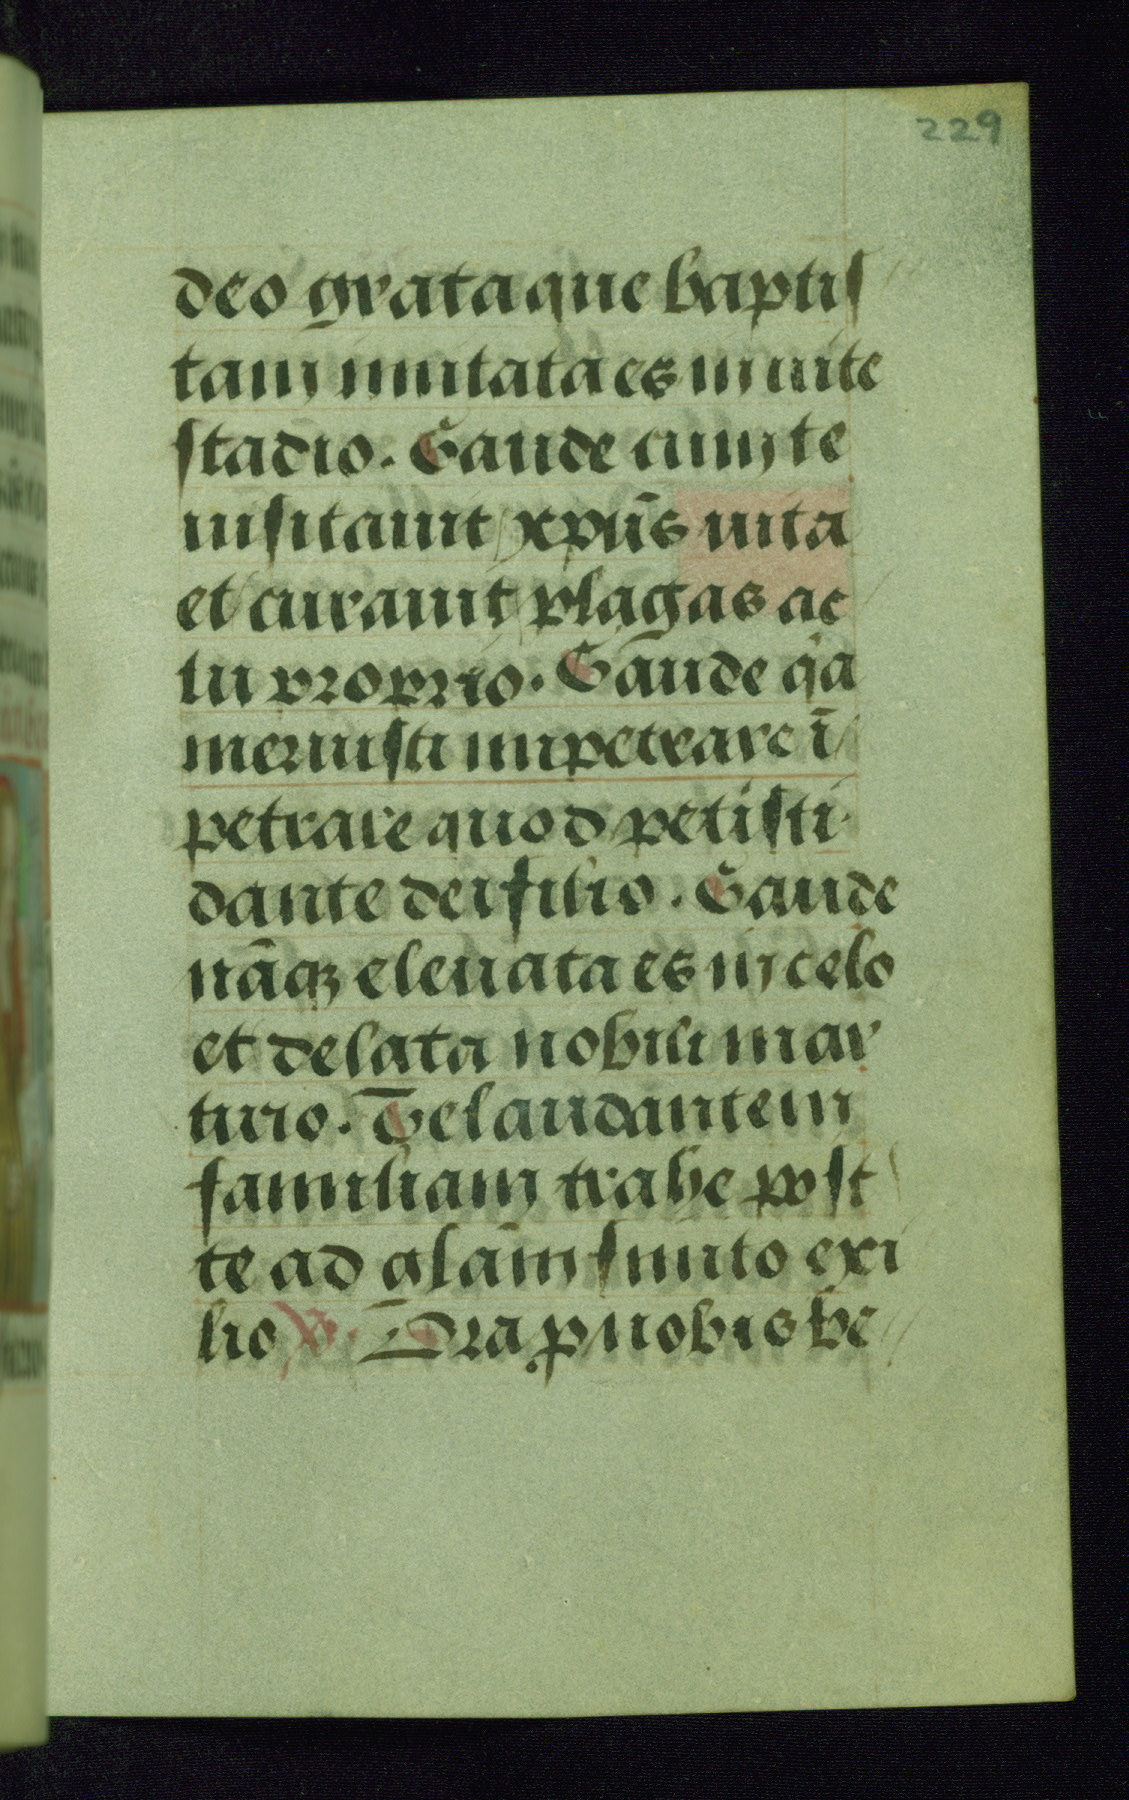 229
deo grata que baptis
tam imitata es in uite
stadio. Gaude cum te
uisitauit xpūs uita
et curauit plagas ac
tu proprio. Gaude qa
meruisti impetrare ī
petrare quod petisti
dante dei filio. Gaude
nāqꝫ eleuata es in celo
et delata nobili mar
tirio. Te laudantem
familiam trahe post
te ad glām finito exi
lio ℣. Ora p nobis be